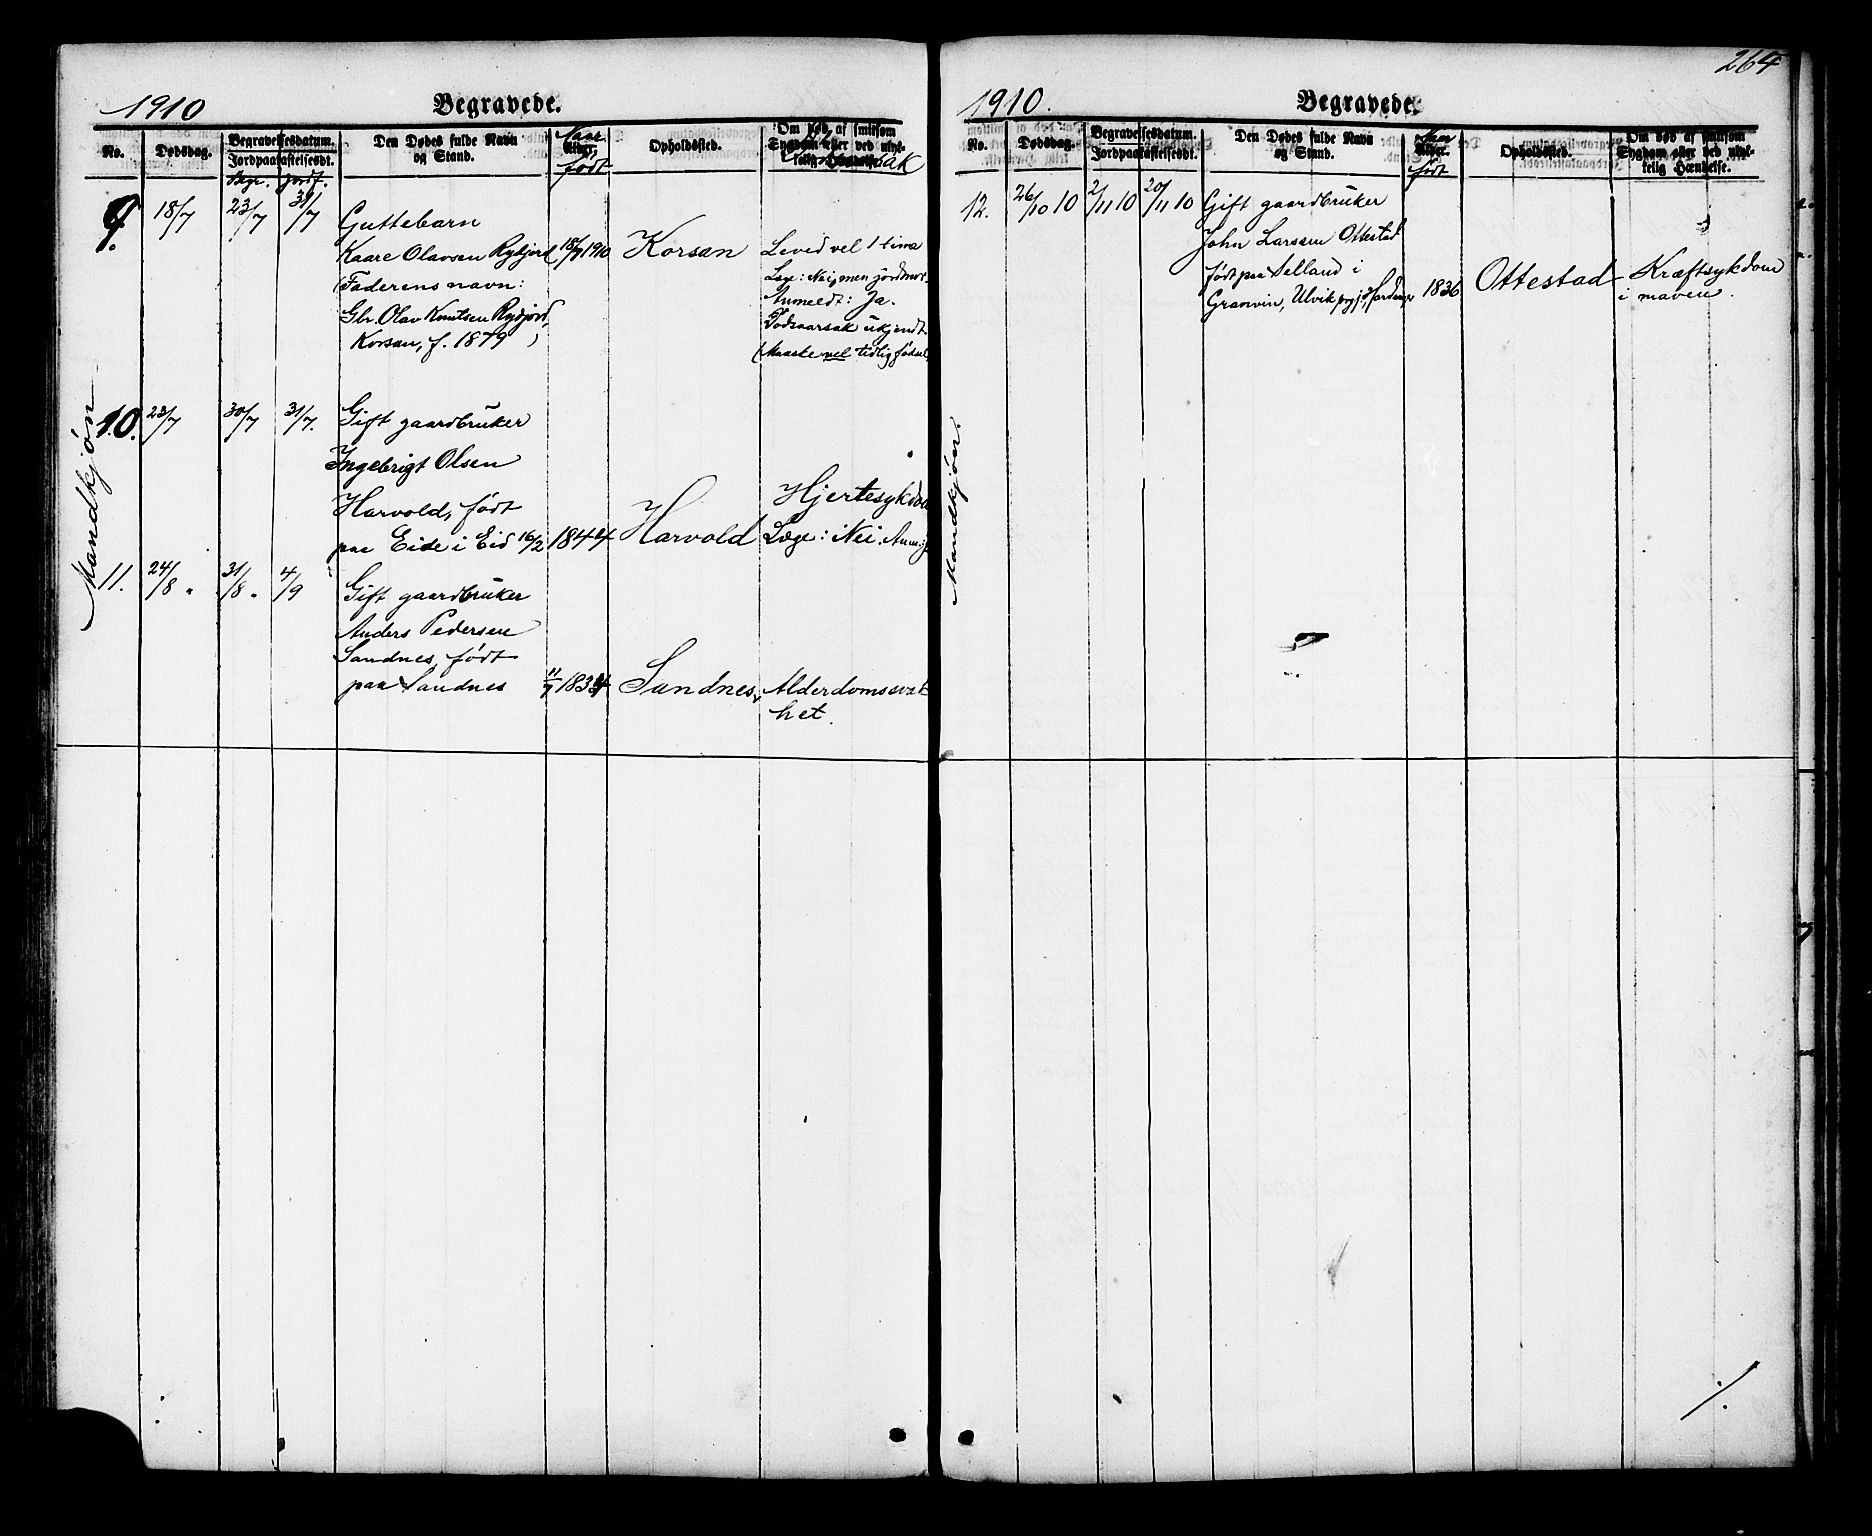 1910 Begravede.
No. Dødsdag. Begravelsesdatum. Jordpaakastelsesdt. Den Dødes fulde Navn og Stand. Naar født Opholdssted. Om død af smitsom Sygdom eller ved ulyk-kelig
Begr. Jordf.
Mandkjøn
9. 18/7 23/7 31/7 Guttebarn
Kaare Olavsen Rydjord 18/7 1910 Korsan Leved vel 1 time
(Faderens navn: Læge: Nei, men jordmor.
Gbr. Olav Knutsen Rydjord, Anmeldt: Ja.
Korsan, f. 1879) Dødsaarsak ukjendt
(Maaske vel tidlig fødsel)
10. 23/7 30/7 31/7. Gift gaardbruker
Ingebrigt Olsen
Harvold, født Hjertesykdom
paa Eide i Eid 16/2 1844 Harvold Læge: Nei.
11. 24/8 31/8 4/9 Gift gaardbruker
Anders Pedersen
Sandnes, født
paa Sandnes 1834 Sandnes Alderdomssvak
het.
264
1910. Begravede.
No. Dødsdag. Begravelsesdatum. Jordpaakastelsesdt. Den Dødes fulde Navn og Stand. Naar født Opholdssted. Om død af smitsom Sygdom eller ved ulyk-kelig Hændelse.
Mandkjøn.
12. 26/10 10 2/11 10 20/11 10 Gift gaardbruker
John Larssen Ottestad
født paa Selland i
Granvin, Ulvik prgj., Hardanger 1836 Ottestad Kræftsykdom
i maven.